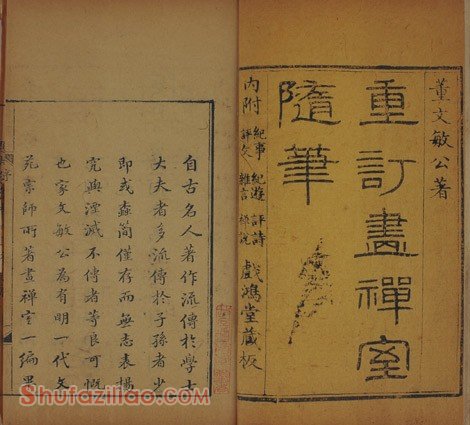 董文敏公著
重訂畫禪室
隨筆
內附
紀事 紀遊 評詩
評文 雜言 禪說
戲鴻堂藏板
自古名人著作流傳於學士
大夫者多流傳於子孫者少
即或蠹簡僅存而無志表揚
究與湮滅不傳者等良可慨
也家文敏公為有明一代文
苑宗師所著畫禪室一編畢
Shufaziliao.com